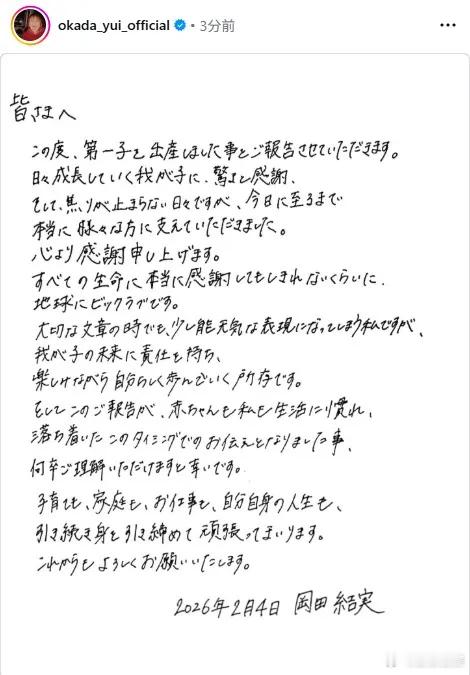 okada_yui_official • 3分前
皆さまへ
この度、第一子を出産しました事をご報告させていただきます。
日々成長していく我が子に、驚きと感謝、
そして、焦りが止まらない日々ですが、今日に至るまで
本当に様々な方に支えていただきました。
心より感謝申し上げます。
すべての生命に本当に感謝してもしきれないくらいに、
地球にビックラブです。
大切な文章の時でも、少し能天気な表現になってしまう私ですが、
我が子の未来に責任を持ち、
楽しみながら自分らしく歩んでいく所存です。
そしてこのご報告が、赤ちゃんも私も生活に慣れ、
落ち着いたこのタイミングでのお伝えとなりました事、
何卒ご理解いただけますと幸いです。
子育ても、家庭も、お仕事も、自分自身の人生も、
引き続き身を引き締めて頑張ってまいります。
これからもよろしくお願いいたします。
2026年2月4日 岡田結実